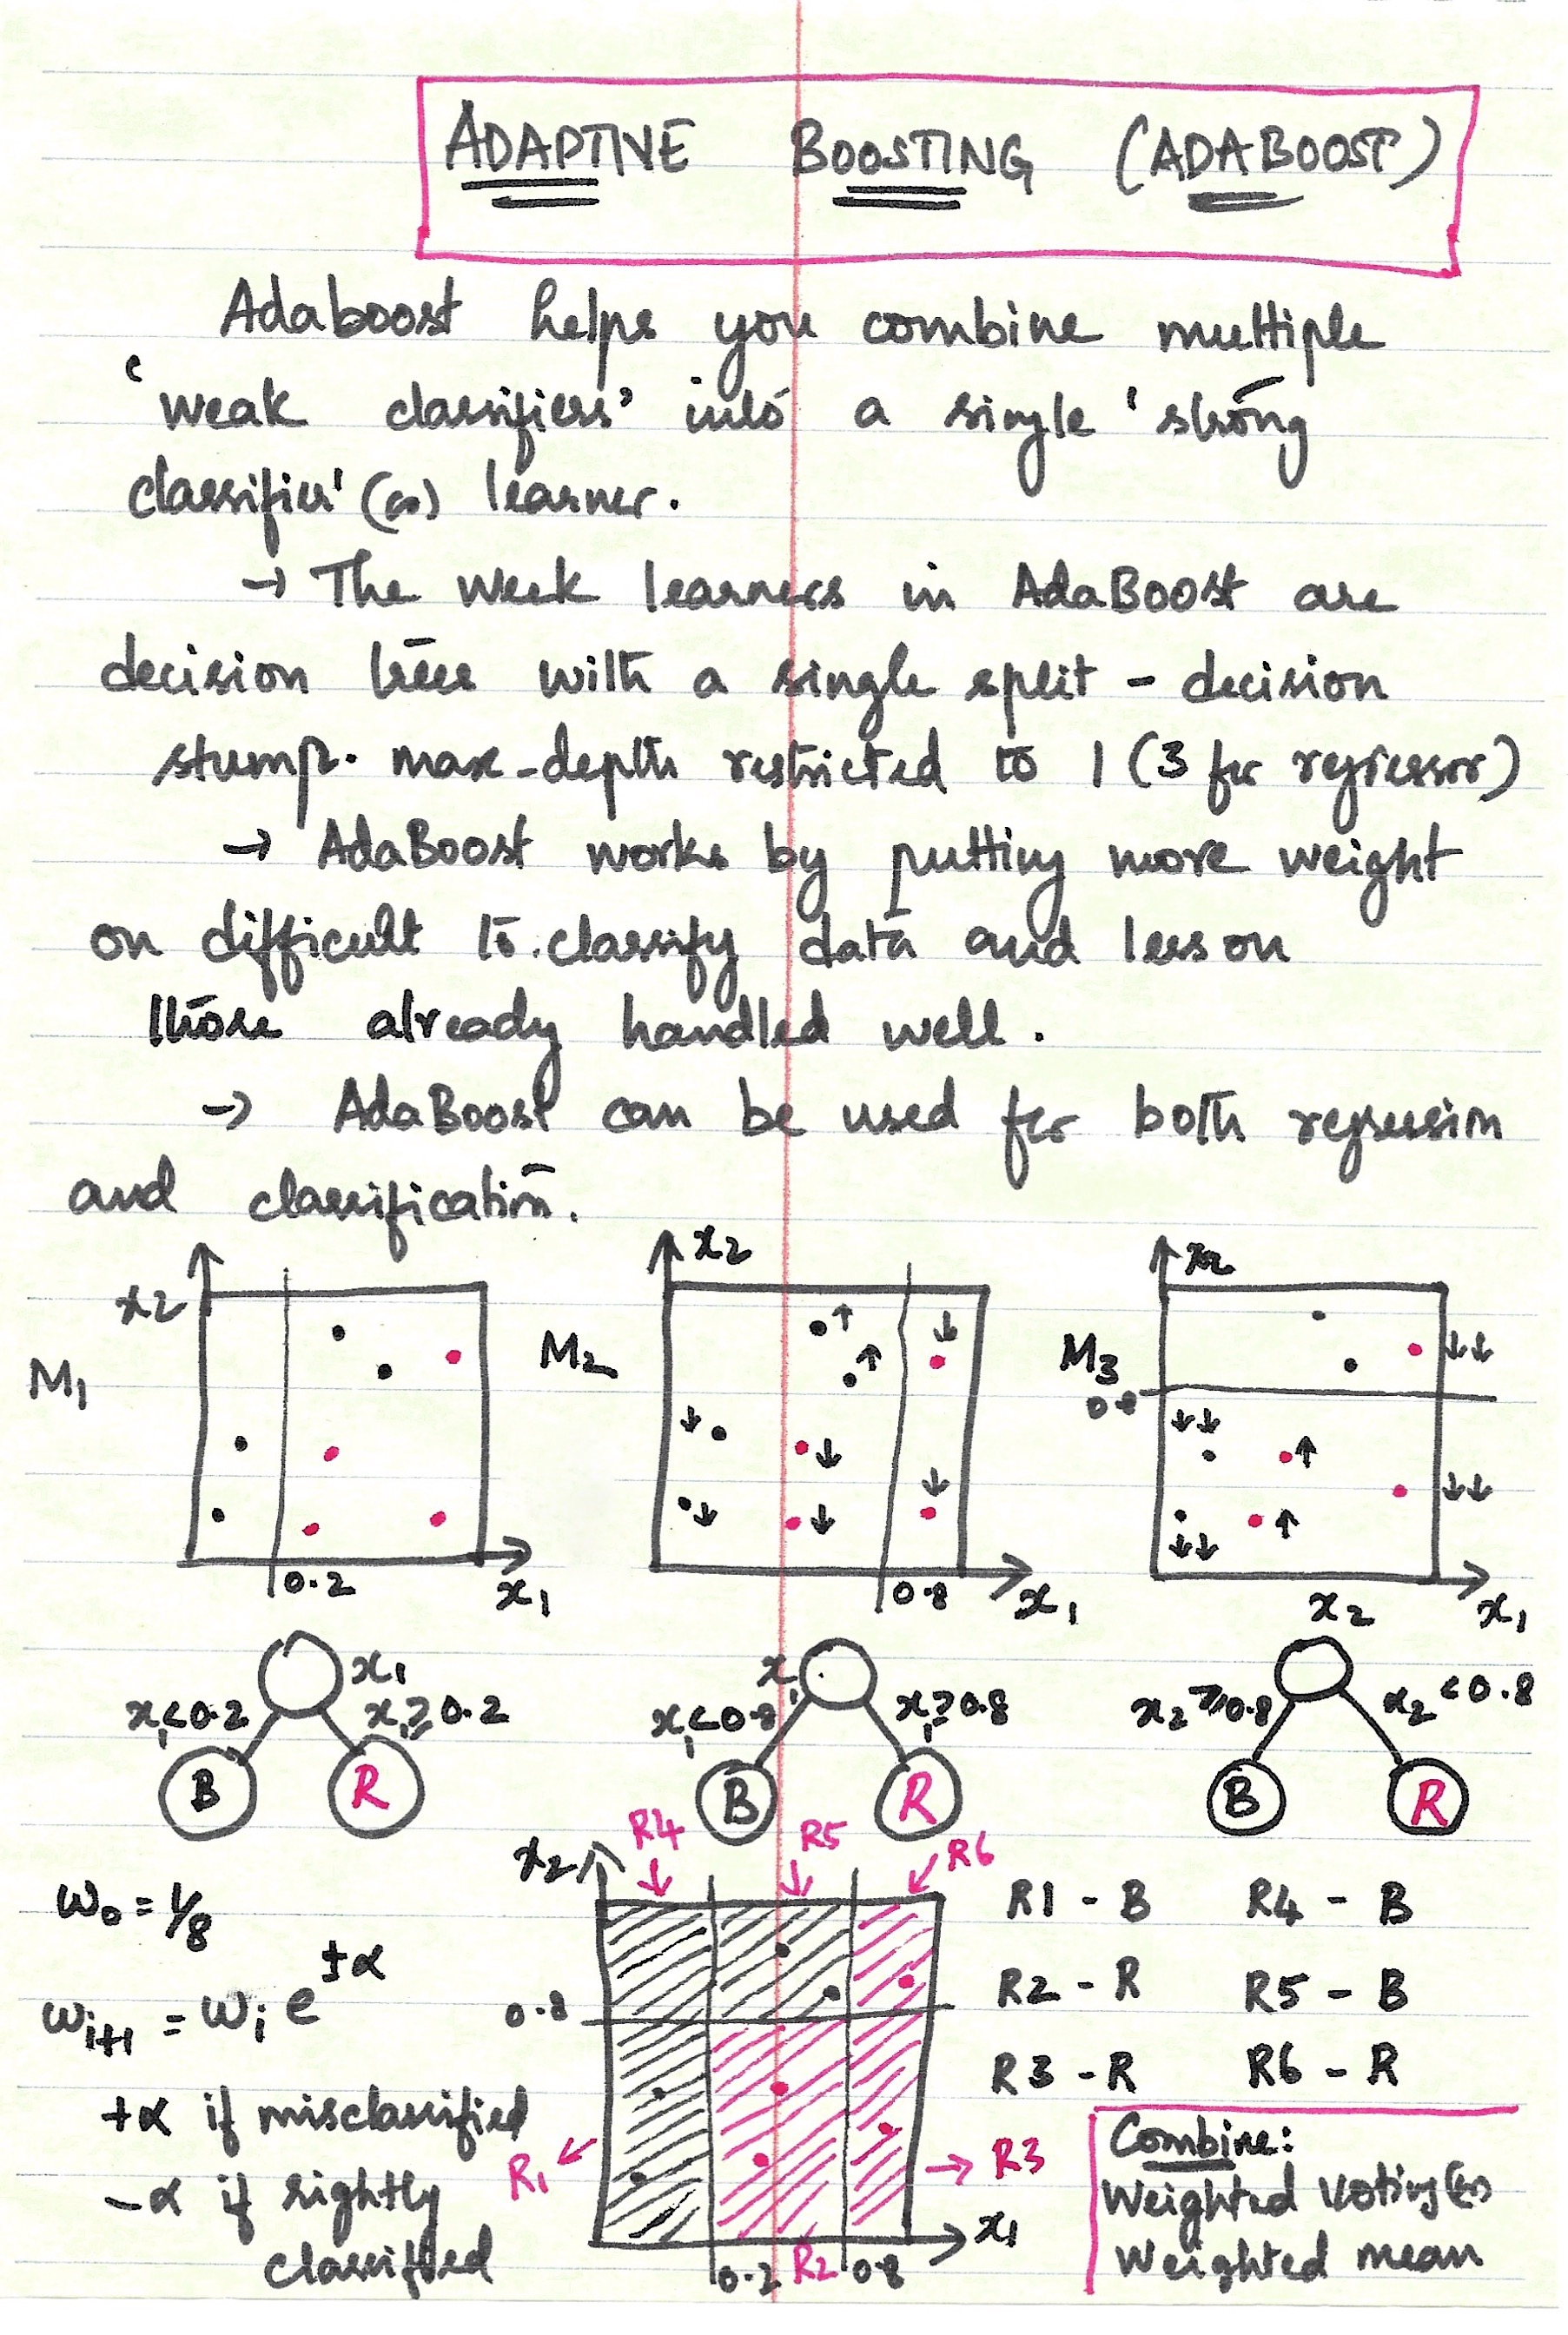 ADAPTIVE BOOSTING (ADABOOST)
Adaboost helps you combine multiple
'weak classifiers' into a single 'strong
classifier' (or) learner.
→ The weak learners in AdaBoost are
decision trees with a single split - decision
stump. max-depth restricted to 1 (3 for regressor)
→ AdaBoost works by putting more weight
on difficult to classify data and less on
those already handled well.
→ AdaBoost can be used for both regression
and classification.
x2 x2 x2
M1 M2 M3
0.8
0.2 x1 0.8 x1 x1
x1 x1 x2
x1<0.2 x1≥0.2 x1<0.8 x1≥0.8 x2≥0.8 x2<0.8
B R B R B R
R4 R5 R6
x2
w0 = 1/8
R1 - B R4 - B
wi+1 = wi e^±α
0.8
R2 - R R5 - B
R3 - R R6 - R
+α if misclassified
-α if rightly
classified
R1 R3
x1
0.2 R2 0.8
Combine:
Weighted voting (or)
Weighted mean